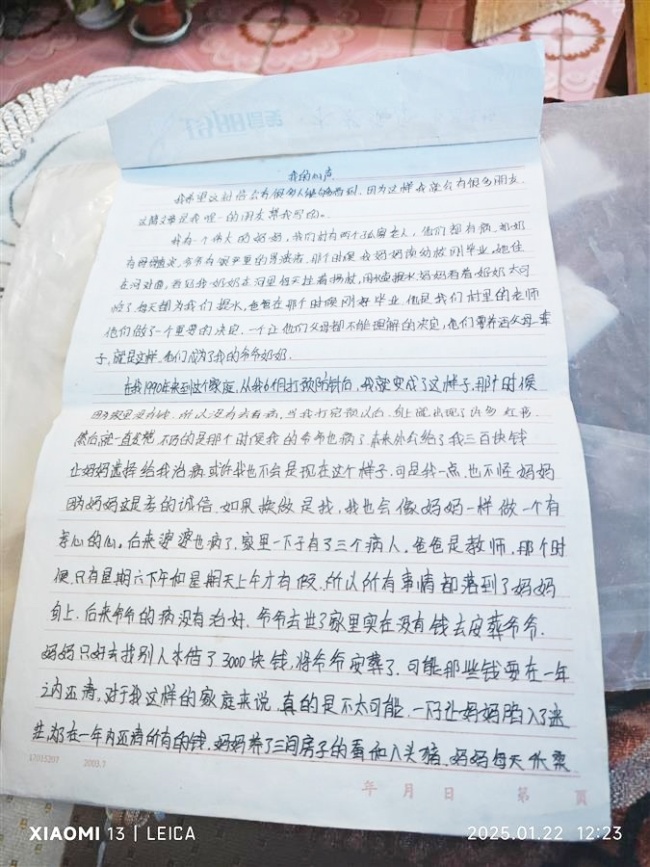 我的心声
我希望这封信会有很多人能够看到，因为这样我就会有很多朋友
这篇文章是我唯一的朋友帮我写的。
我有一个伟大的妈妈，我们村有两个孤寡老人，他们都有病，奶奶
有，爷爷有很严重的胃，那个时候我妈妈刚毕业，她住
在河对面，看见我奶奶在河里每天，妈妈看着奶奶太可
怜了，每天都为我们提水，爸爸在那个时候刚好毕业，他是我们村里的老师
他们做了一个重要的决定，一个让他们父母都不能理解的决定，他们要养活父母一辈
子，就是这样，他们成为了我的爷爷奶奶。
在我1990年来到这个家庭，从我6个月打预防针后，我就变成了这样子，那个时候
因为家里没有钱，所以没有去看病，当我打完预以后，身上就出现了许多红
然后就一直发烧，不巧的是那个时候我的爷爷也病了，给了我三百块钱
让妈妈选择给我治病或许我也不会是现在这个样子，可是我一点，也不怪妈妈
因为妈妈这是孝的诚信，如果换做是我，我也会像妈妈一样做一个有
孝心的心。后来婆婆也病了，家里一下子有了三个病人。爸爸是教师，那个时
候，只有星期六下午和星期天上午才有假，所以所有事情都落到了妈妈
身上，后来爷爷的病没有治好，爷爷去世了家里实在没有钱去安葬爷爷，
妈妈只好去找别人借了3000块钱，将爷爷安葬了，可能那些钱要在一年
之内还清，对于我这样的家庭来说，真的是不太可能，一下让妈妈陷入了迷
茫，为了在一年内还清所有的钱，妈妈养了三间房子的蚕和八头猪，妈妈每天
2003.7
年 月 日 第 页
XIAOMI 13 | LEICA
2025.01.22 12:23